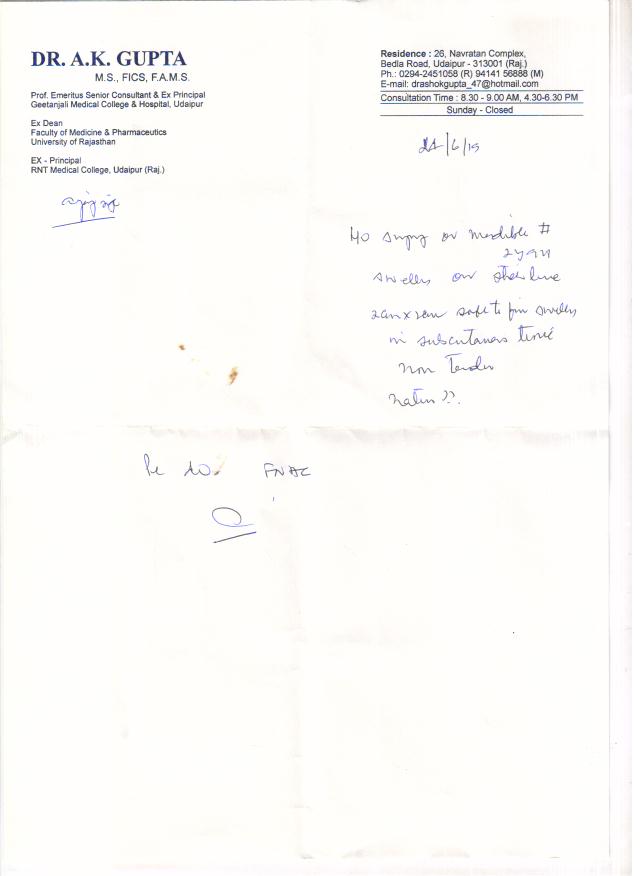 DR. A.K. GUPTA
M.S., FICS, F.A.M.S.
Prof. Emeritus Senior Consultant & Ex Principal
Geetanjali Medical College & Hospital, Udaipur
Ex Dean
Faculty of Medicine & Pharmaceutics
University of Rajasthan
EX - Principal
RNT Medical College, Udaipur (Raj.)
Residence : 26, Navratan Complex,
Bedla Road, Udaipur - 313001 (Raj.)
Ph.: 0294-2451058 (R) 94141 56888 (M)
E-mail: drashokgupta_47@hotmail.com
Consultation Time : 8.30 - 9.00 AM, 4.30-6.30 PM
Sunday - Closed
/6/19
H/O on mandible #
swelly on
2cm x 2cm soft to firm swelly
in subcutaneous
non Tender
FNAC